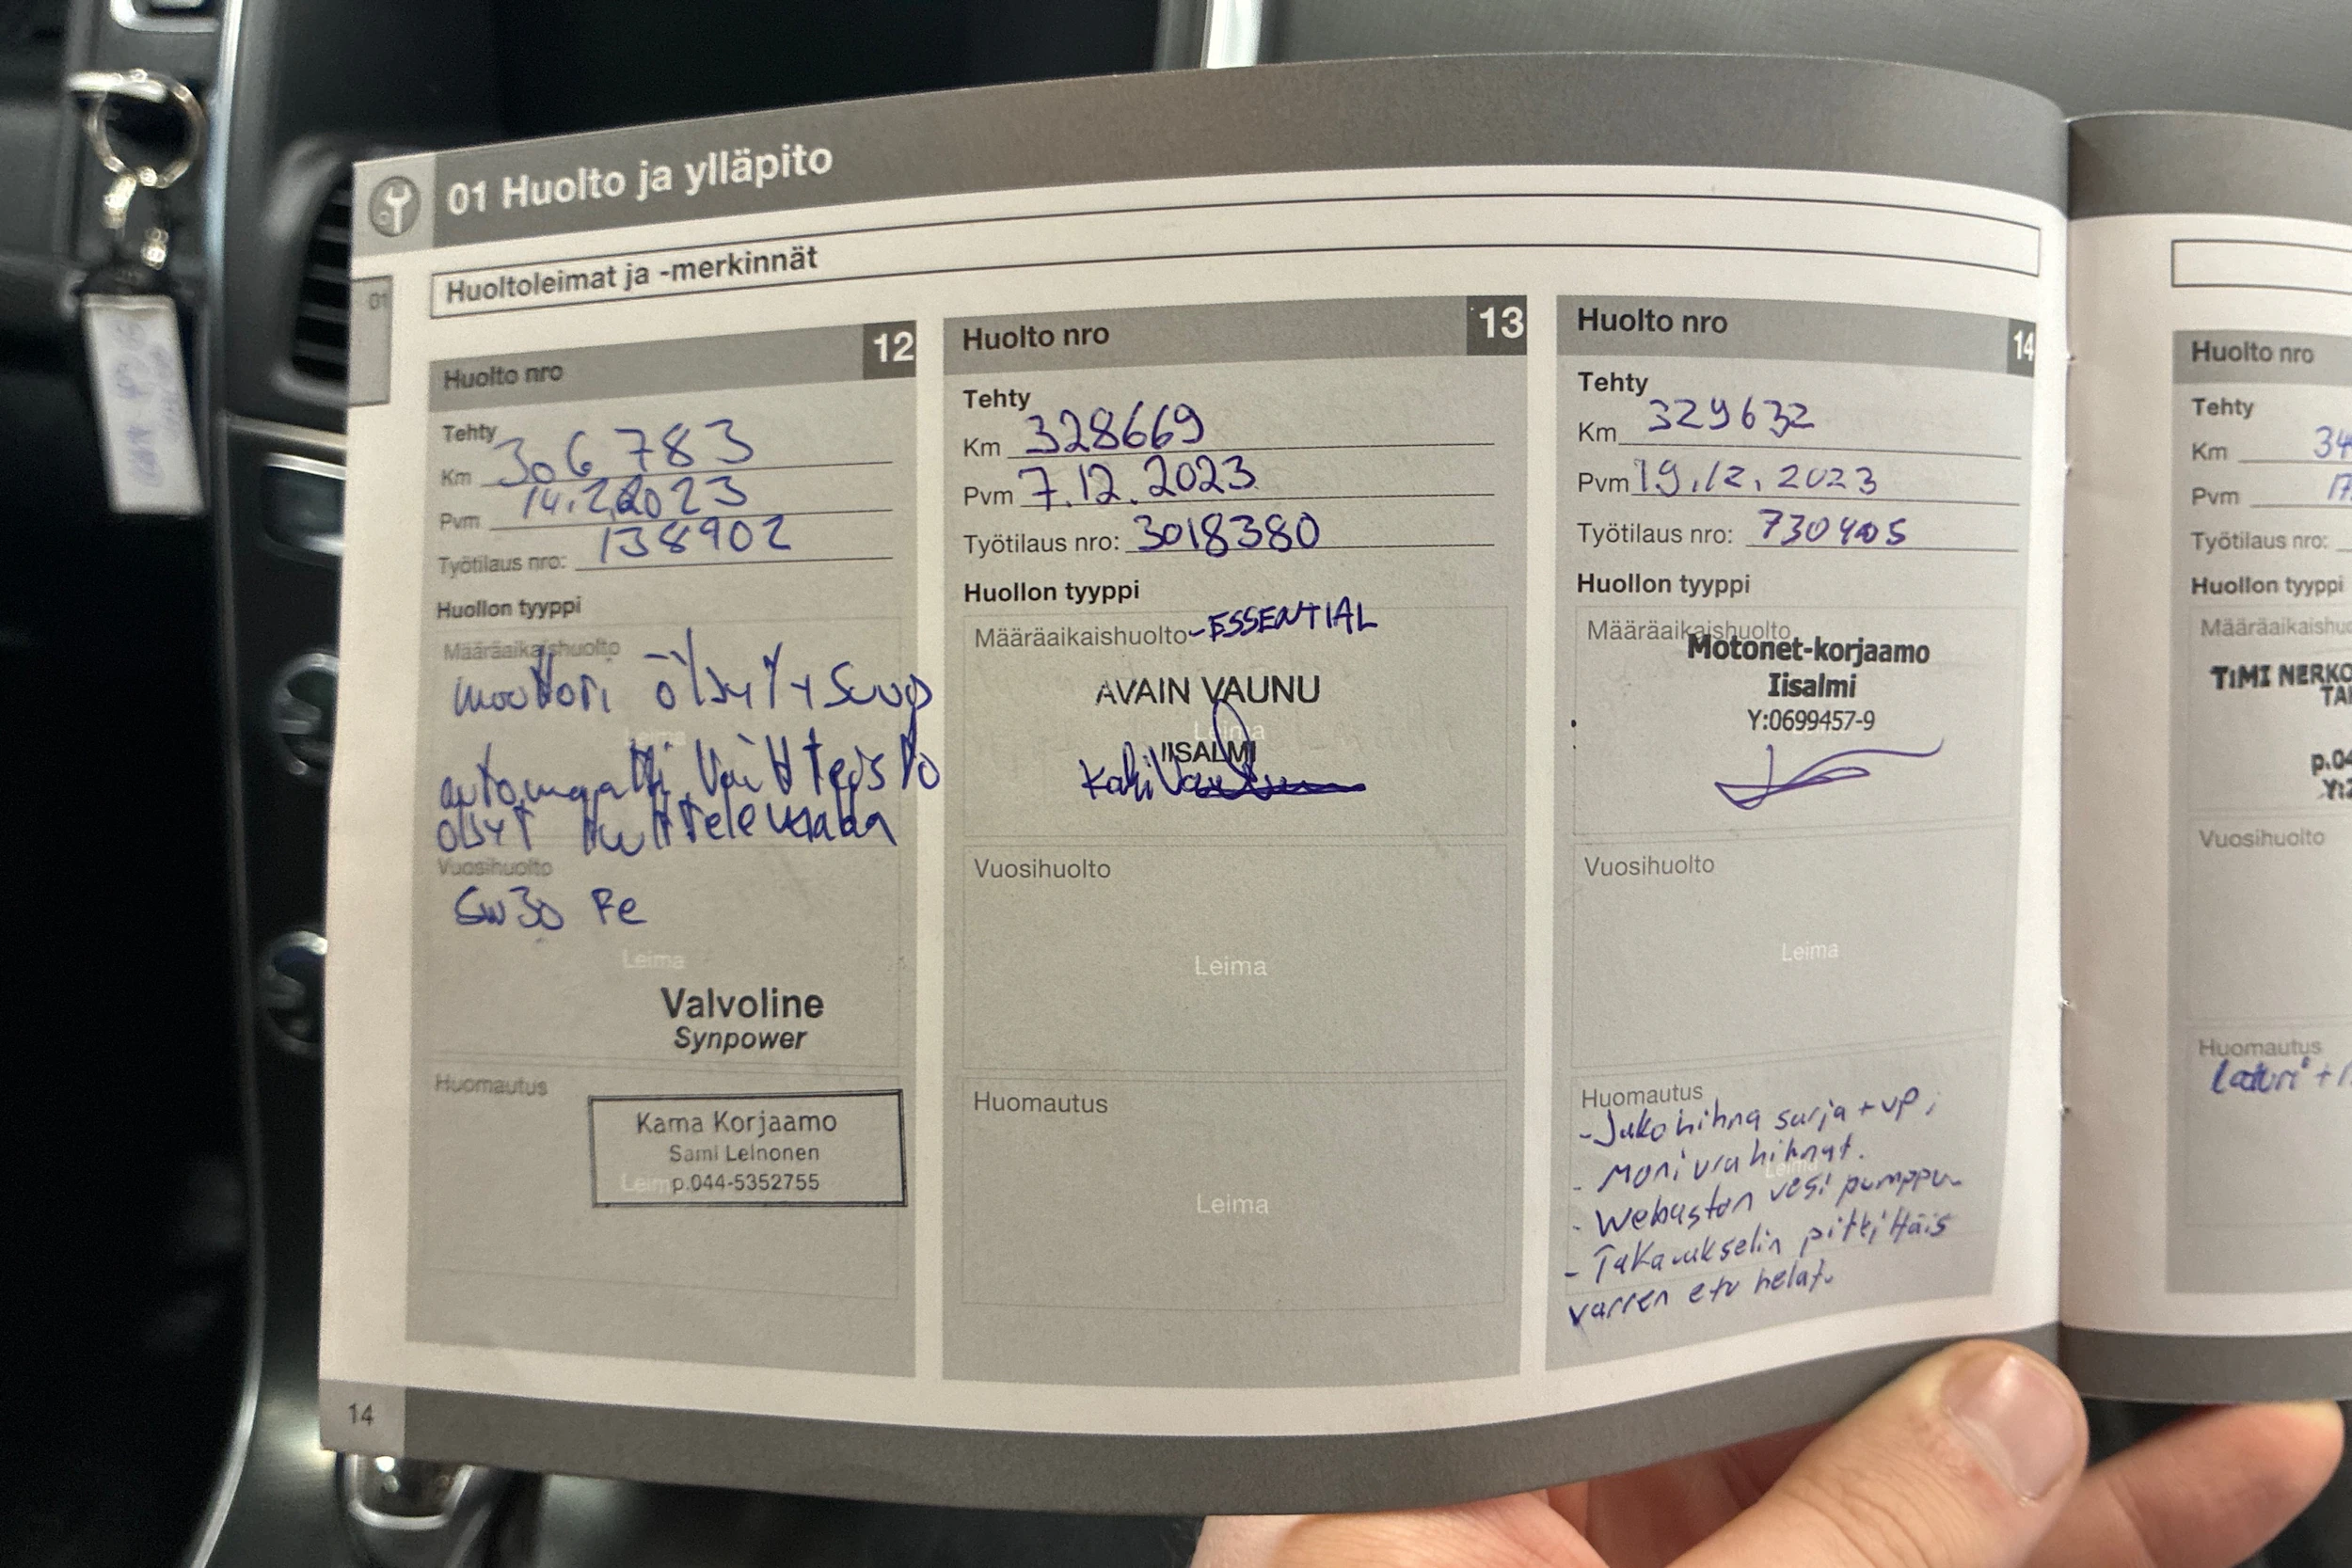 01 Huolto ja ylläpito
01
Huoltoleimat ja -merkinnät
Huolto nro 12
Tehty
Km 306 783
Pvm 14.2.2023
Työtilaus nro: 138902
Huollon tyyppi
Määräaikaishuolto
moottori öljyt + suod
Leima
automaatti vaihteisto
öljyt huuhtelemalla
Vuosihuolto
5w30 Fe
Leima
Valvoline
Synpower
Huomautus
Kama Korjaamo
Sami Leinonen
Leima p.044-5352755
14
Huolto nro 13
Tehty
Km 328669
Pvm 7.12.2023
Työtilaus nro: 3018380
Huollon tyyppi
Määräaikaishuolto -ESSENTIAL
AVAIN VAUNU
Leima
IISALMI
Vuosihuolto
Leima
Huomautus
Leima
Huolto nro 14
Tehty
Km 329632
Pvm 19.12.2023
Työtilaus nro: 730405
Huollon tyyppi
Määräaikaishuolto
Motonet-korjaamo
Iisalmi
Y:0699457-9
Vuosihuolto
Leima
Huomautus
- Jakohihna sarja + vp,
- Moniurahihnat.
Leima
- Webaston vesi pumppu
- Takaukselin pitkittäis
varren etu helat.
Huolto nro
Tehty
Km 34
Pvm 17
Työtilaus nro:
Huollon tyyppi
Määräaikaishuo
TiMI NERKO
TA
p.04
Y:2
Vuosihuolto
Huomautus
Laturi +